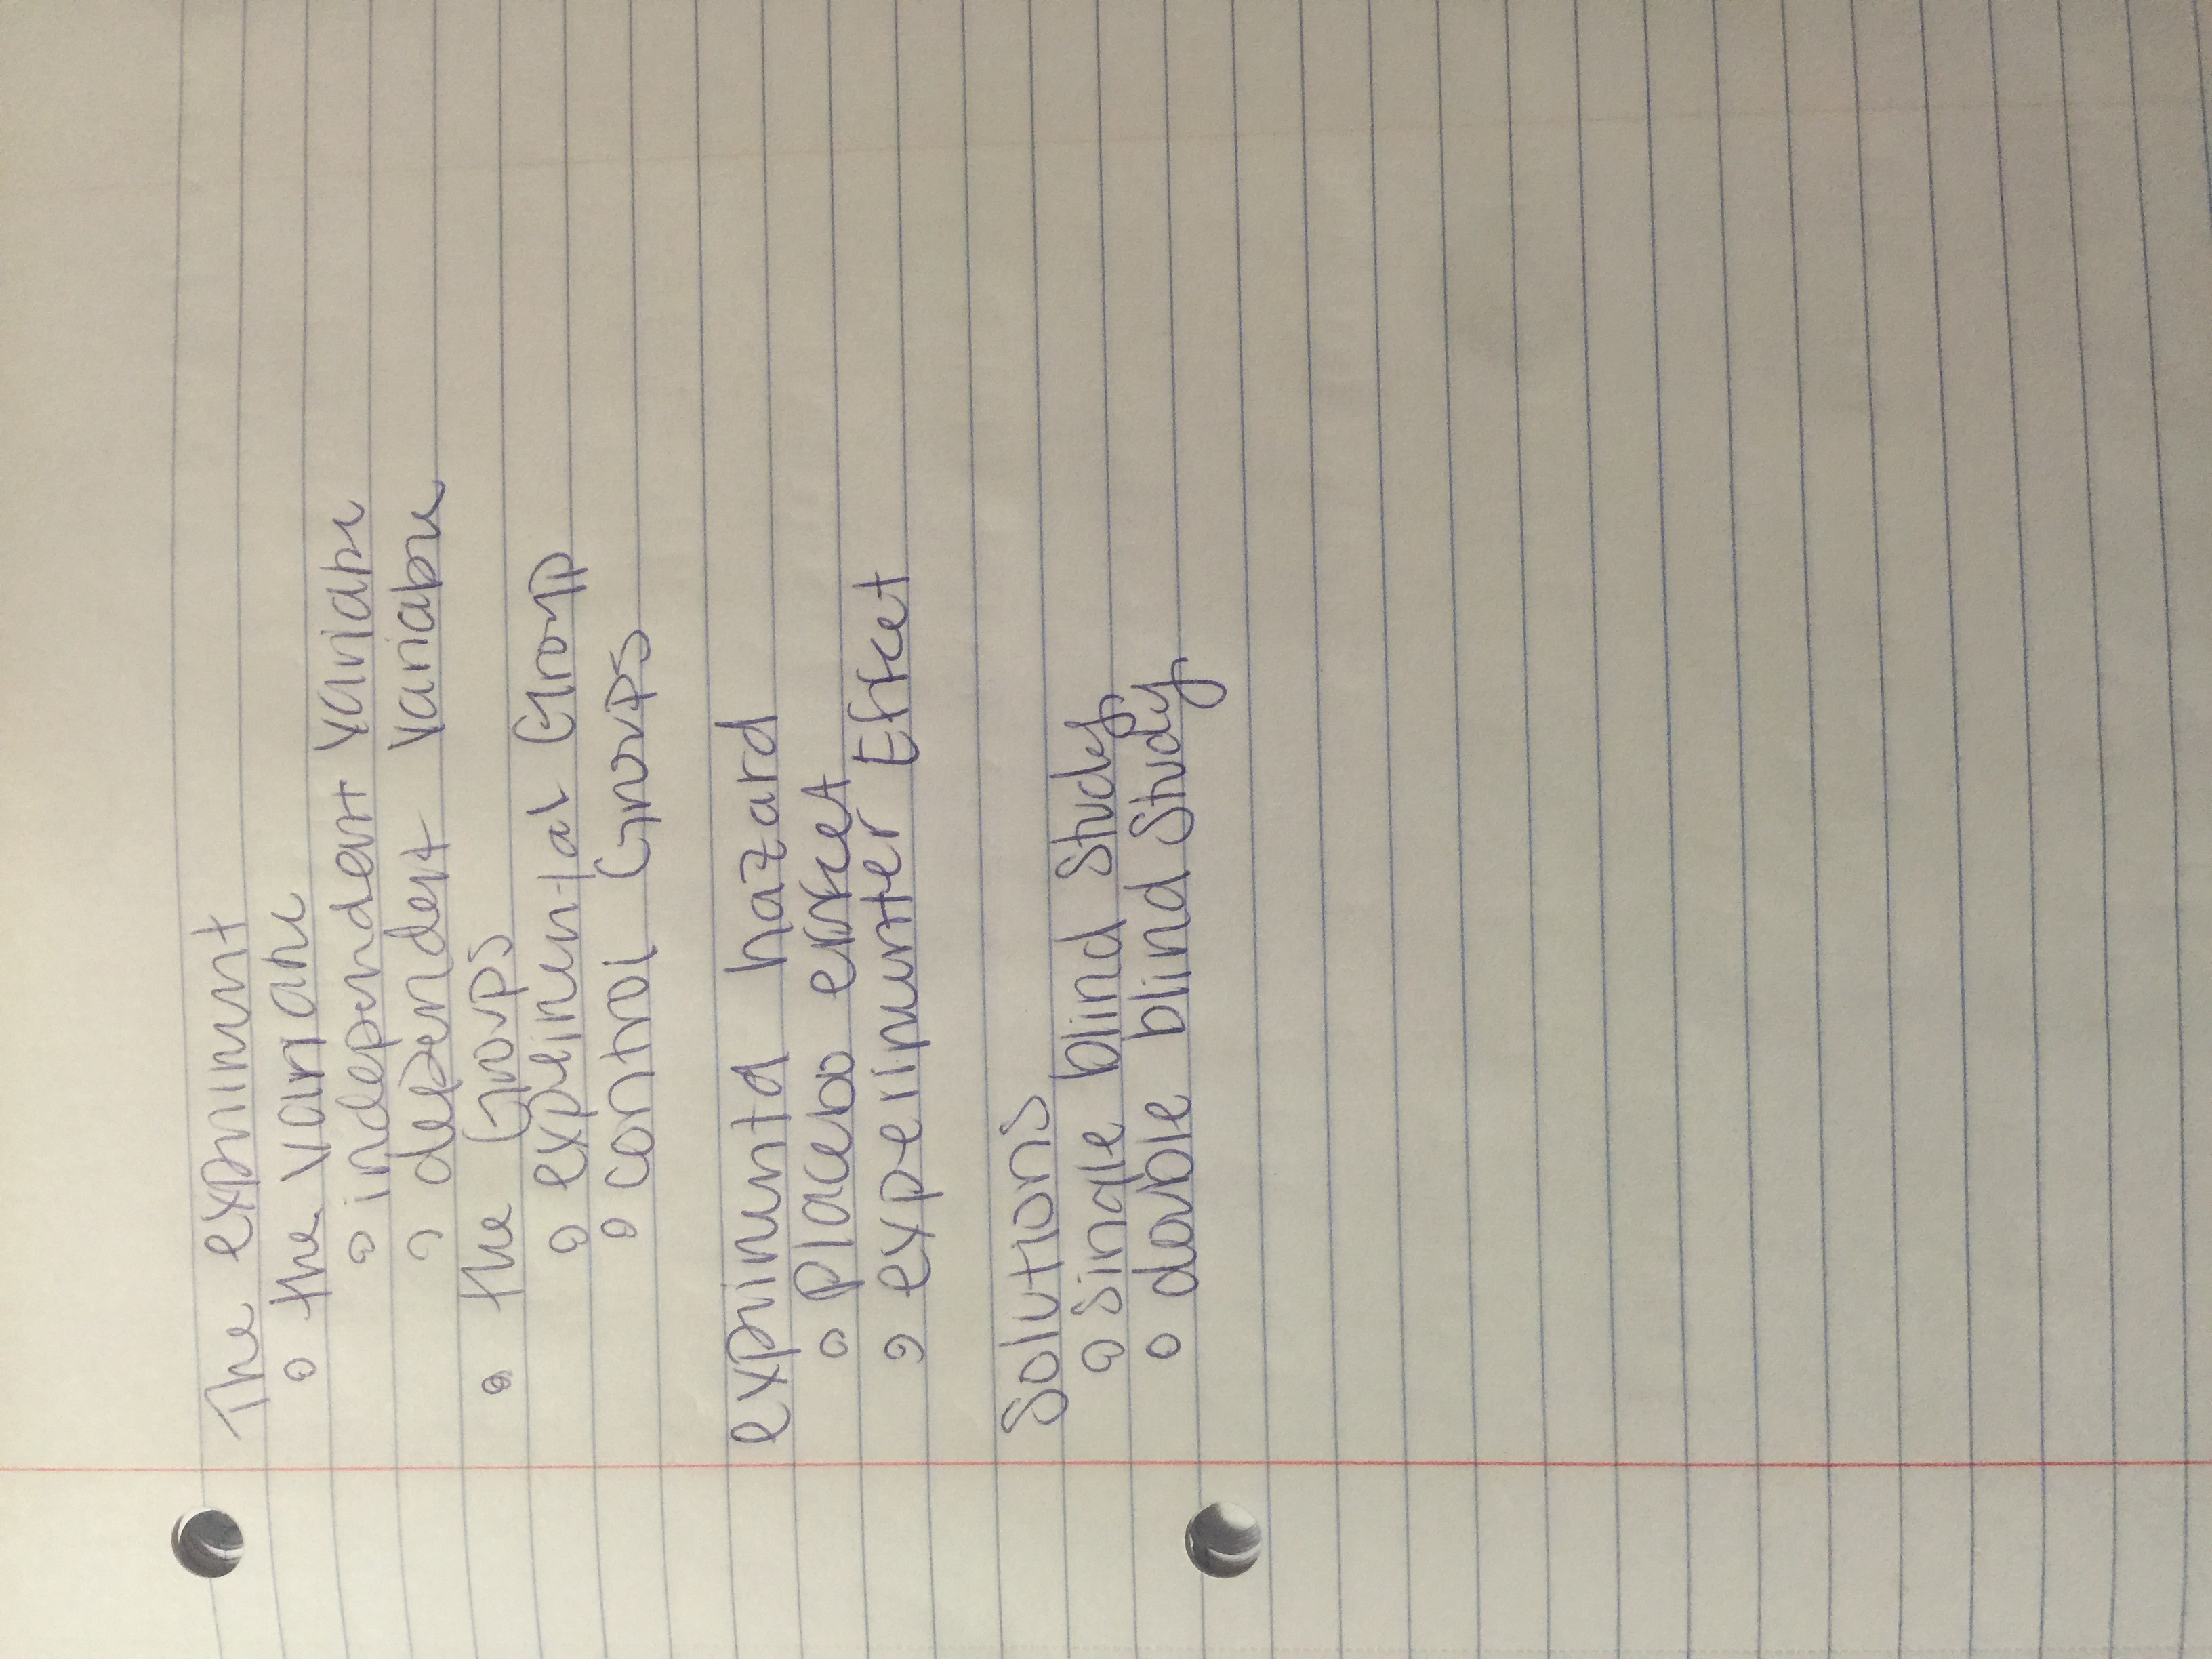 The experiment
the variable
independent variable
dependent variable
the Groups
experimental Group
control Groups
experimental hazard
Placebo effect
experimenter Effect
Solutions
Single blind Study
double blind Study